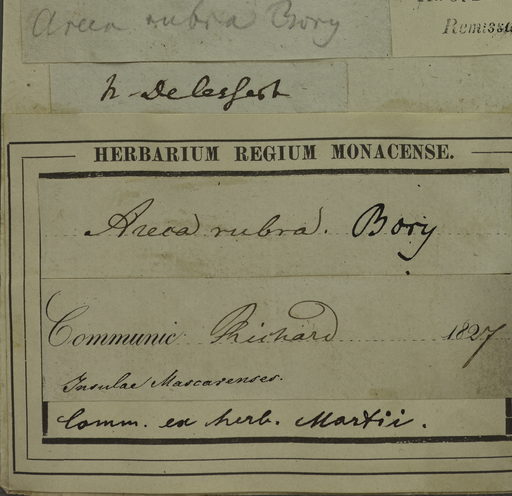 Areca rubra Bory
h Delessert
HERBARIUM REGIUM MONACENSE.
Areca rubra. Bory
Communic. Richard 1827
Insulae Mascarenses.
Comm. ex herb. Martii.